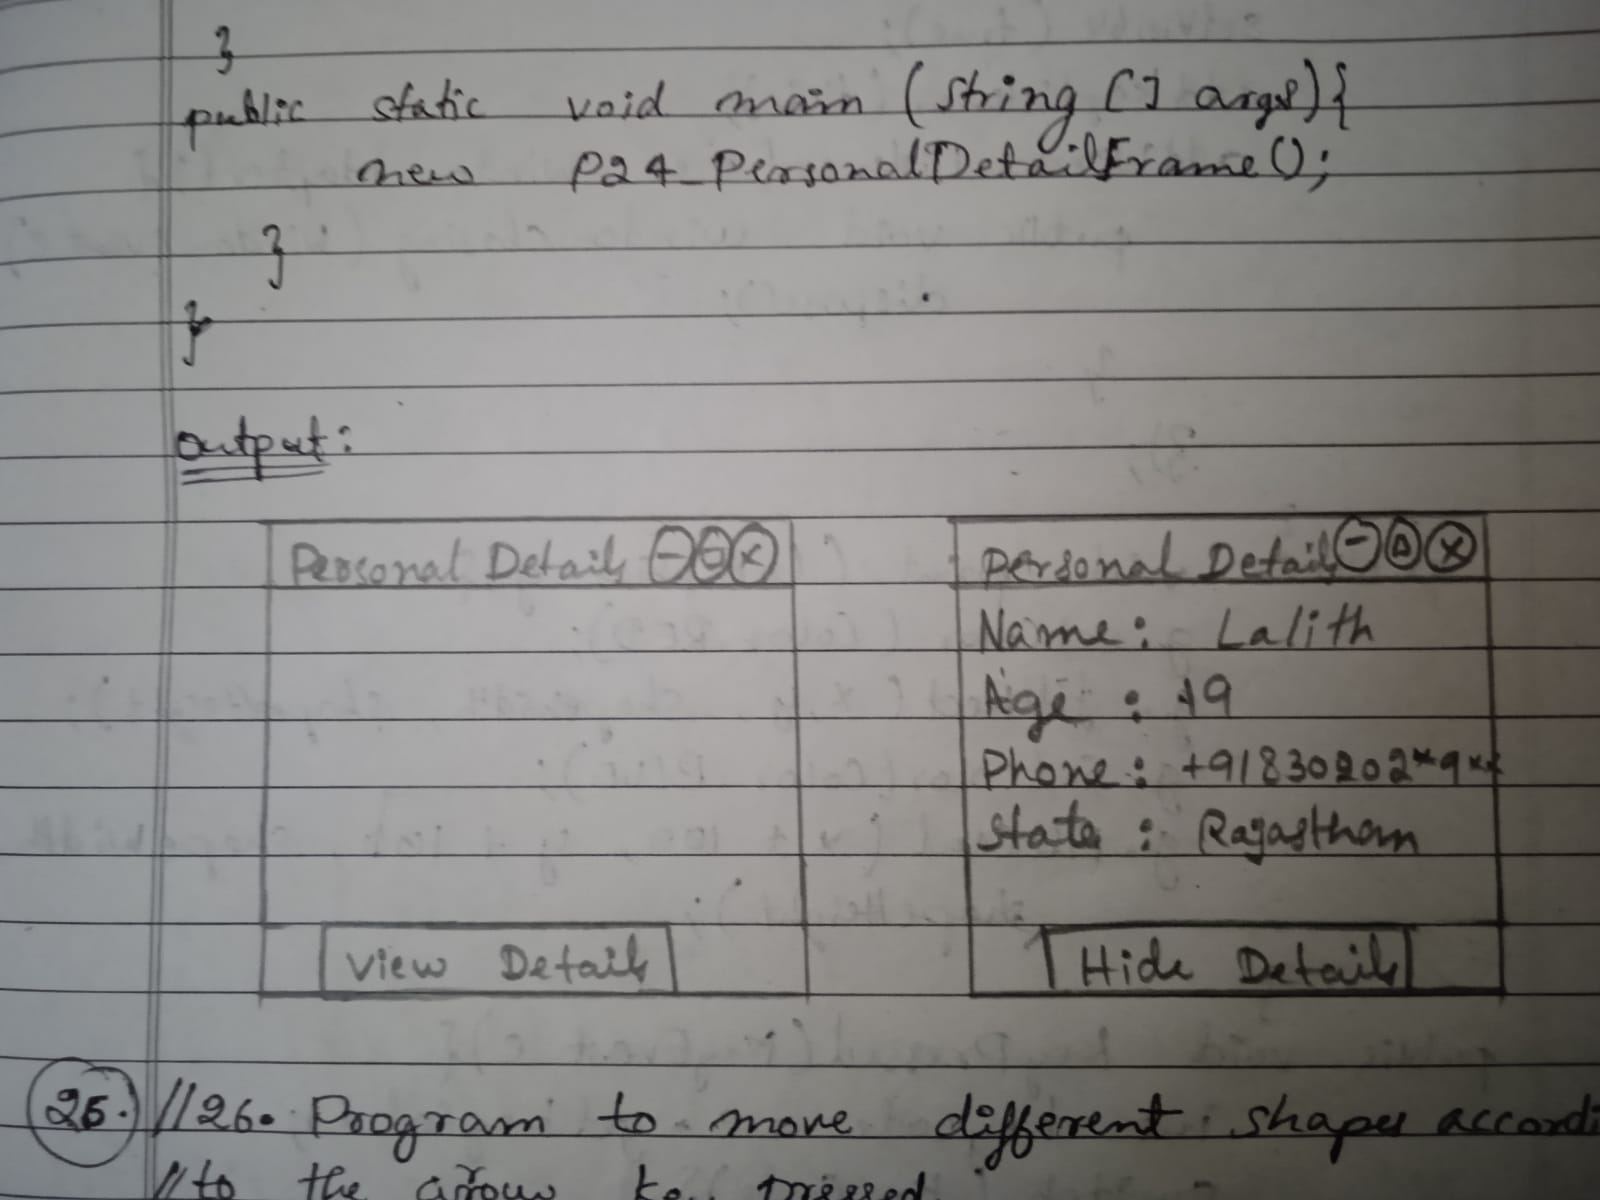 }
public static void main (String [] args) {
new P24_PersonalDetailFrame();
}
}
Output:
Personal Details
View Details
Personal Details
Name: Lalith
Age : 19
Phone: +91830202*9**
State : Rajasthan
Hide Details
25. //26. Program to move different shapes accordi
//to the arrow key pressed